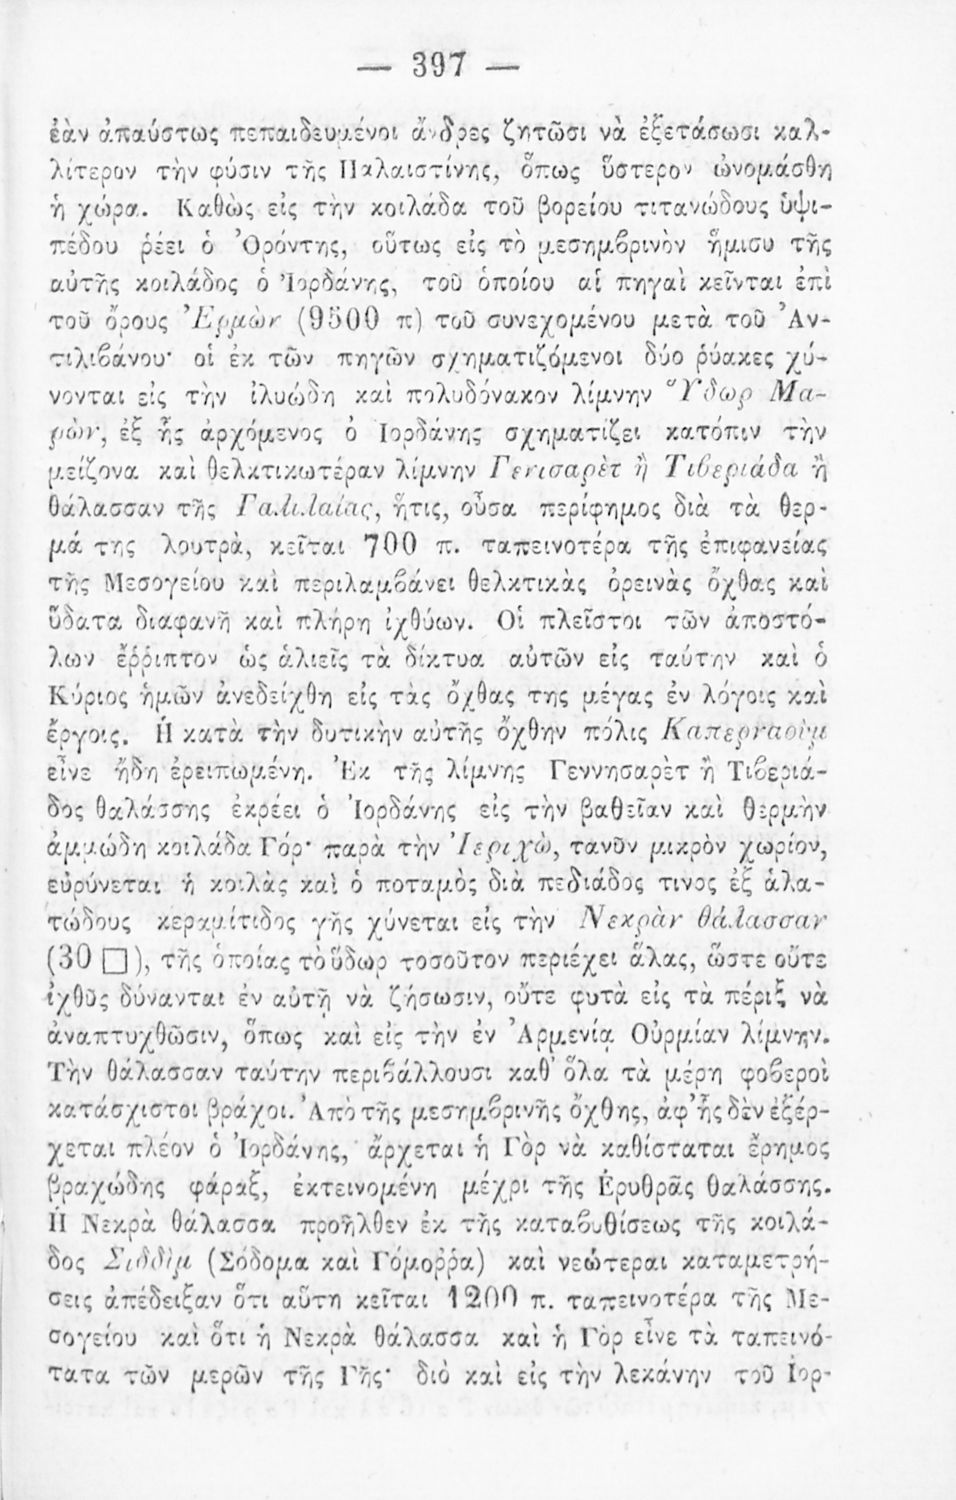 — 397 —
ἐὰν ἀπαύστως πεπαιδευμένοι ἄνδρες ζητῶσι νὰ ἐξετάσωσι καλ-
λίτερον τὴν φύσιν τῆς Παλαιστίνης, ὅπως ὕστερον ὠνομάσθη
ἡ χώρα. Καθὼς εἰς τὴν κοιλάδα τοῦ βορείου τιτανώδους ὑψι-
πέδου ῥέει ὁ Ὀρόντης, οὕτως εἰς τὸ μεσημβρινὸν ἥμισυ τῆς
αὐτῆς κοιλάδος ὁ Ἰορδάνης, τοῦ ὁποίου αἱ πηγαὶ κεῖνται ἐπὶ
τοῦ ὄρους Ἑρμὼν (9500 π) τοῦ συνεχομένου μετὰ τοῦ Ἀν-
τιλιβάνου· οἱ ἐκ τῶν πηγῶν σχηματιζόμενοι δύο ῥύακες χύ-
νονται εἰς τὴν ἰλυώδη καὶ πολυδόνακον λίμνην Ὕδωρ Μα-
ρὼν, ἐξ ἧς ἀρχόμενος ὁ Ἰορδάνης σχηματίζει κατόπιν τὴν
μείζονα καὶ θελκτικωτέραν λίμνην Γενισαρὲτ ἢ Τιβεριάδα ἢ
θάλασσαν τῆς Γαλιλαίας, ἥτις, οὖσα περίφημος διὰ τὰ θερ-
μά της λουτρὰ, κεῖται 700 π. ταπεινοτέρα τῆς ἐπιφανείας
τῆς Μεσογείου καὶ περιλαμβάνει θελκτικὰς ὀρεινὰς ὄχθας καὶ
ὕδατα διαφανῆ καὶ πλήρη ἰχθύων. Οἱ πλεῖστοι τῶν ἀποστό-
λων ἔῤῥιπτον ὡς ἁλιεῖς τὰ δίκτυα αὐτῶν εἰς ταύτην καὶ ὁ
Κύριος ἡμῶν ἀνεδείχθη εἰς τὰς ὄχθας της μέγας ἐν λόγοις καὶ
ἔργοις. Ἡ κατὰ τὴν δυτικὴν αὐτῆς ὄχθην πόλις Καπερναοὺμ
εἶνε ἤδη ἐρειπωμένη. Ἐκ τῆς λίμνης Γεννησαρὲτ ἢ Τιβεριά-
δος θαλάσσης ἐκρέει ὁ Ἰορδάνης εἰς τὴν βαθεῖαν καὶ θερμὴν
ἀμμώδη κοιλάδα Γόρ· παρὰ τὴν Ἰεριχὼ, τανῦν μικρὸν χωρίον,
εὐρύνεται ἡ κοιλὰς καὶ ὁ ποταμὸς διὰ πεδιάδος τινος ἐξ ἁλα-
τώδους κεραμίτιδος γῆς χύνεται εἰς τὴν Νεκρὰν θάλασσαν
(30 □), τῆς ὁποίας τὸ ὕδωρ τοσοῦτον περιέχει ἅλας, ὥστε οὔτε
ἰχθῦς δύνανται ἐν αὐτῇ νὰ ζήσωσιν, οὔτε φυτὰ εἰς τὰ πέριξ νὰ
ἀναπτυχθῶσιν, ὅπως καὶ εἰς τὴν ἐν Ἀρμενίᾳ Οὐρμίαν λίμνην.
Τὴν θάλασσαν ταύτην περιβάλλουσι καθ’ ὅλα τὰ μέρη φοβεροὶ
κατάσχιστοι βράχοι. Ἀπὸ τῆς μεσημβρινῆς ὄχθης, ἀφ’ ἧς δὲν ἐξέρ-
χεται πλέον ὁ Ἰορδάνης, ἄρχεται ἡ Γὸρ νὰ καθίσταται ἔρημος
βραχώδης φάραξ, ἐκτεινομένη μέχρι τῆς Ἐρυθρᾶς θαλάσσης.
Ἡ Νεκρὰ θάλασσα προῆλθεν ἐκ τῆς καταβυθίσεως τῆς κοιλά-
δος Σιδδὶμ (Σόδομα καὶ Γόμοῤῥα) καὶ νεώτεραι καταμετρή-
σεις ἀπέδειξαν ὅτι αὕτη κεῖται 1200 π. ταπεινοτέρα τῆς Με-
σογείου καὶ ὅτι ἡ Νεκρὰ θάλασσα καὶ ἡ Γὸρ εἶνε τὰ ταπεινό-
τατα τῶν μερῶν τῆς Γῆς· διὸ καὶ εἰς τὴν λεκάνην τοῦ Ἰορ-